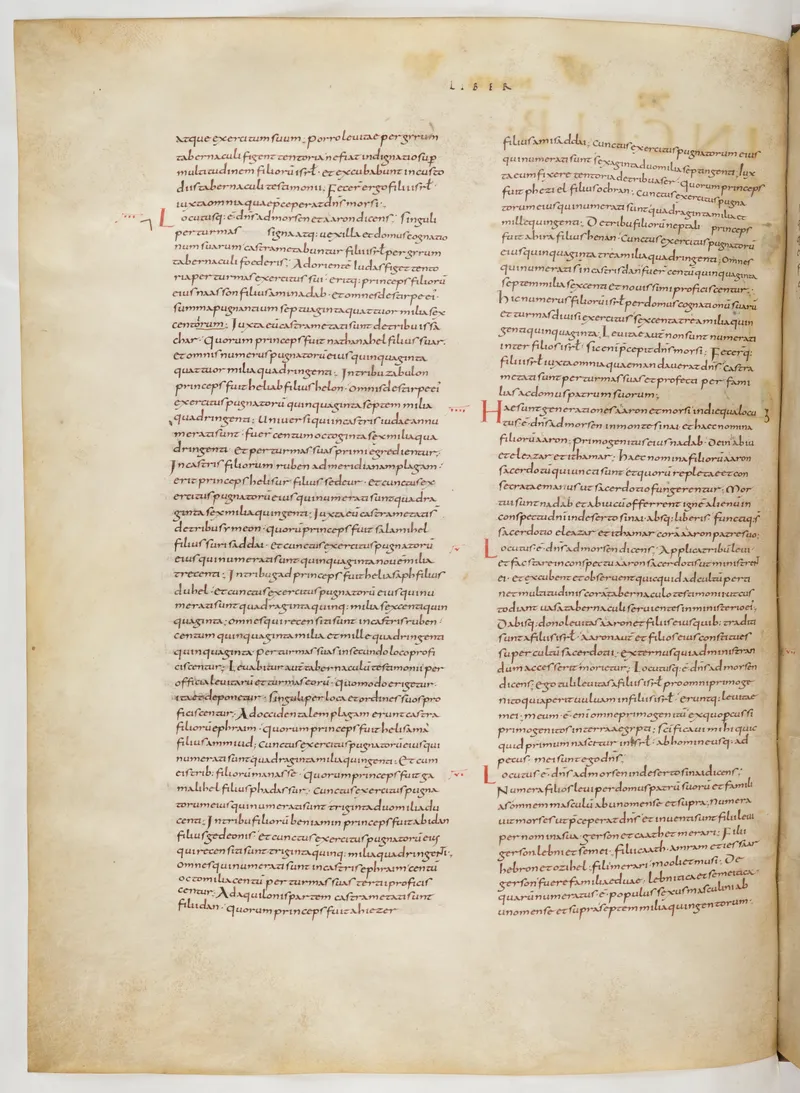 LIBER
atque exercitum suum; porro leuitae per gyrum
tabernaculi figent tentoria ne fiat indignatio sup
multitudinem filiorū isrł· et excubabunt in custo
diis tabernaculi testimonii; Fecer̄ ergo filii isrł·
iuxta omnia quae p̄ceperat dn̄s morsi·
Locutusq: ē dn̄s ad morsen et aaron dicens; singuli
per turmas signa atq: uexilla et domus cognatio
num suarum castrametabuntur filii isrł per gyrum
tabernaculi foederis; Ad orientē Iudas figet tento
ria per turmas exercitus sui· eritq: princeps filiorū
eius naasson filius aminadab· et omnes de stirpe ei·
summa pugnantium septuaginta quattuor milia sex
centorum; Iuxta eū castrametati sunt de tribu issa
char· Quorum princeps fuit nathanahel filius suar·
et omnis numerus pugnatorū eius quinquaginta
quattuor milia quadringenti; In tribu zabulon
princeps fuit heliab filius helon· Omnis de stirpe ei
exercitus pugnatorū quinquaginta septem milia
quadringenti; Uniuersi qui in castris iudae annu
merati sunt· fuer̄ centum octoginta sex milia qua
dringenti· et per turmas suas primi egredientur;
In castris filiorum ruben ad meridianam plagam·
erit princeps helisur filius sedeur· et cunctus ex
ercitus pugnatorū eius qui numerati sunt quadra
ginta sex milia quingenti; Iuxta eū castrametati s̄
de tribu symeon· quorū princeps fuit salamihel
filius surisaddai· et cunctus exercitus pugnatorū
eius qui numerati sunt quinquaginta noue milia
trecenti; In tribu gad princeps fuit heliasaph filius
duhel· et cunctus exercitus pugnatorū eius qui nu
merati sunt quadraginta quinq: milia sexcenti quin
quaginta; omnes qui recensiti sunt in castris ruben·
centum quinquaginta milia et mille quadringenti
quinquaginta· per turmas suas in secundo loco profi
ciscentur; Leuabitur aut̄ tabernaculū testimonii per
officia leuitarū et turmas eorū· Quomodo erigetur·
ita et deponetur· singuli per loca et ordines suos pro
ficiscentur; Ad occidentalem plagam erunt castra
filiorū ephraim· quorum princeps fuit helisama
filius ammiud; Cunctus exercitus pugnatorū eius qui
numerati sunt quadraginta milia quingenti; Et cum
eis trib· filiorū manasse· Quorum princeps fuit ga
malihel filius phadassur; Cunctus exercitus pugna
torum eius qui numerati sunt triginta duo milia du
centi; In tribu filiorū beniamin princeps fuit abidan
filius gedeonis· Et cunctus exercitus pugnatorū eius
qui recensiti sunt triginta quinq: milia quadringenti·
omnes qui numerati sunt in castris ephraim· centū
octo milia centū per turmas suas tertii proficis
centur; Ad aquilonis partem castrametati sunt
filii dan· Quorum princeps fuit ahiezer
filius amisaddai; Cunctus exercitus pugnatorum eius
qui numerati sunt sexaginta duo milia septingenti; Iux
ta eum fixere tentoria de tribu aser· Quorum princeps
fuit phegi el filius ochran; Cunctus exercitus pugna
torum eius qui numerati sunt quadraginta milia et
mille quingenti; De tribu filiorū neptali princeps
fuit ahira filius henan· Cunctus exercitus pugnatorū
eius quinquaginta trea milia quadringenti; Omnes
qui numerati s̄ in castris dan fuer̄ centū quinquaginta
septem milia sexcenti et nouissimi proficiscentur;
Hic numerus filiorū isrł per domus cognationū suarū
et turmas diuisi exercitus sexcenta trea milia quin
genti quinquaginta; Leuitae aut̄ non sunt numerati
inter filios isrł· sic eni p̄cepit dn̄s morsi; Fecer̄q:
filii isrł iuxta omnia quae mandauerat dn̄s· Castra
metati sunt per turmas suas et profecti per fami
lias ac domus patrum suorum;
Hae sunt generationes aaron et morsi in die qua locu 3
tus ē dn̄s ad morsen in monte sinai et haec nomina
filiorū aaron; primogenitus eius nadab· Dein abiu
et eleazar et ithamar; Haec nomina filiorū aaron
sacerdotū qui uncti sunt et quorū repletae et con
secratae manus ut sacerdotio fungerentur; Mor
tui sunt nadab et abiu cū offerrent ignē alienū in
conspectu dn̄i in deserto sinai· absq: liberis· functiq: s̄
sacerdotio eleazar et ithamar corā aaron patre suo;
Locutus ē· dn̄s ad morsen dicens; Applica tribū leui·
et fac stare in conspectu aaron sacerdotis ut ministrent
ei· et excubent et obseruent quicquid ad cultū perti
net multitudinis corā tabernaculo testimonii et cus
todiant uasa tabernaculi seruientes in ministerio ei;
Dabisq: dono leuitas aaron et filiis eius quib: traditi
sunt a filiis isrł· aaron aut̄ et filios eius constitues
super cultū sacerdotii· externus qui ad ministran
dum accesserit morietur; Locutusq: ē dn̄s ad morsen
dicens; ego tuli leuitas a filiis isrł pro omni primoge
nito qui aperit uuluam in filiis isrł· eruntq: leuitae
mei; meum ē eni omne primogenitū ex quo pcussi
primogenitos in terra aegypti; scificaui mihi quic
quid primum nascitur in isrł· ab homine usq: ad
pecus· mei sunt ego dn̄s·
Locutus ē· dn̄s ad morsen in deserto sinai dicens;
Numera filios leui per domus patrū suorū et famili
as omnem masculū ab uno mense et supra; Numera
uit morses ut p̄ceperat dn̄s· et inuenti sunt filii leui
per nomina sua· gerson et caath et merari; Filii
gerson lebni et semei· filii caath· Amram et iessaar
hebron et ozihel· filii merari· mooli et musi; De
gerson fuere familiae duae· lebnitica et semeitica·
quarū numeratus ē populus sexus masculini ab
uno mense et supra septem milia quingentorum·